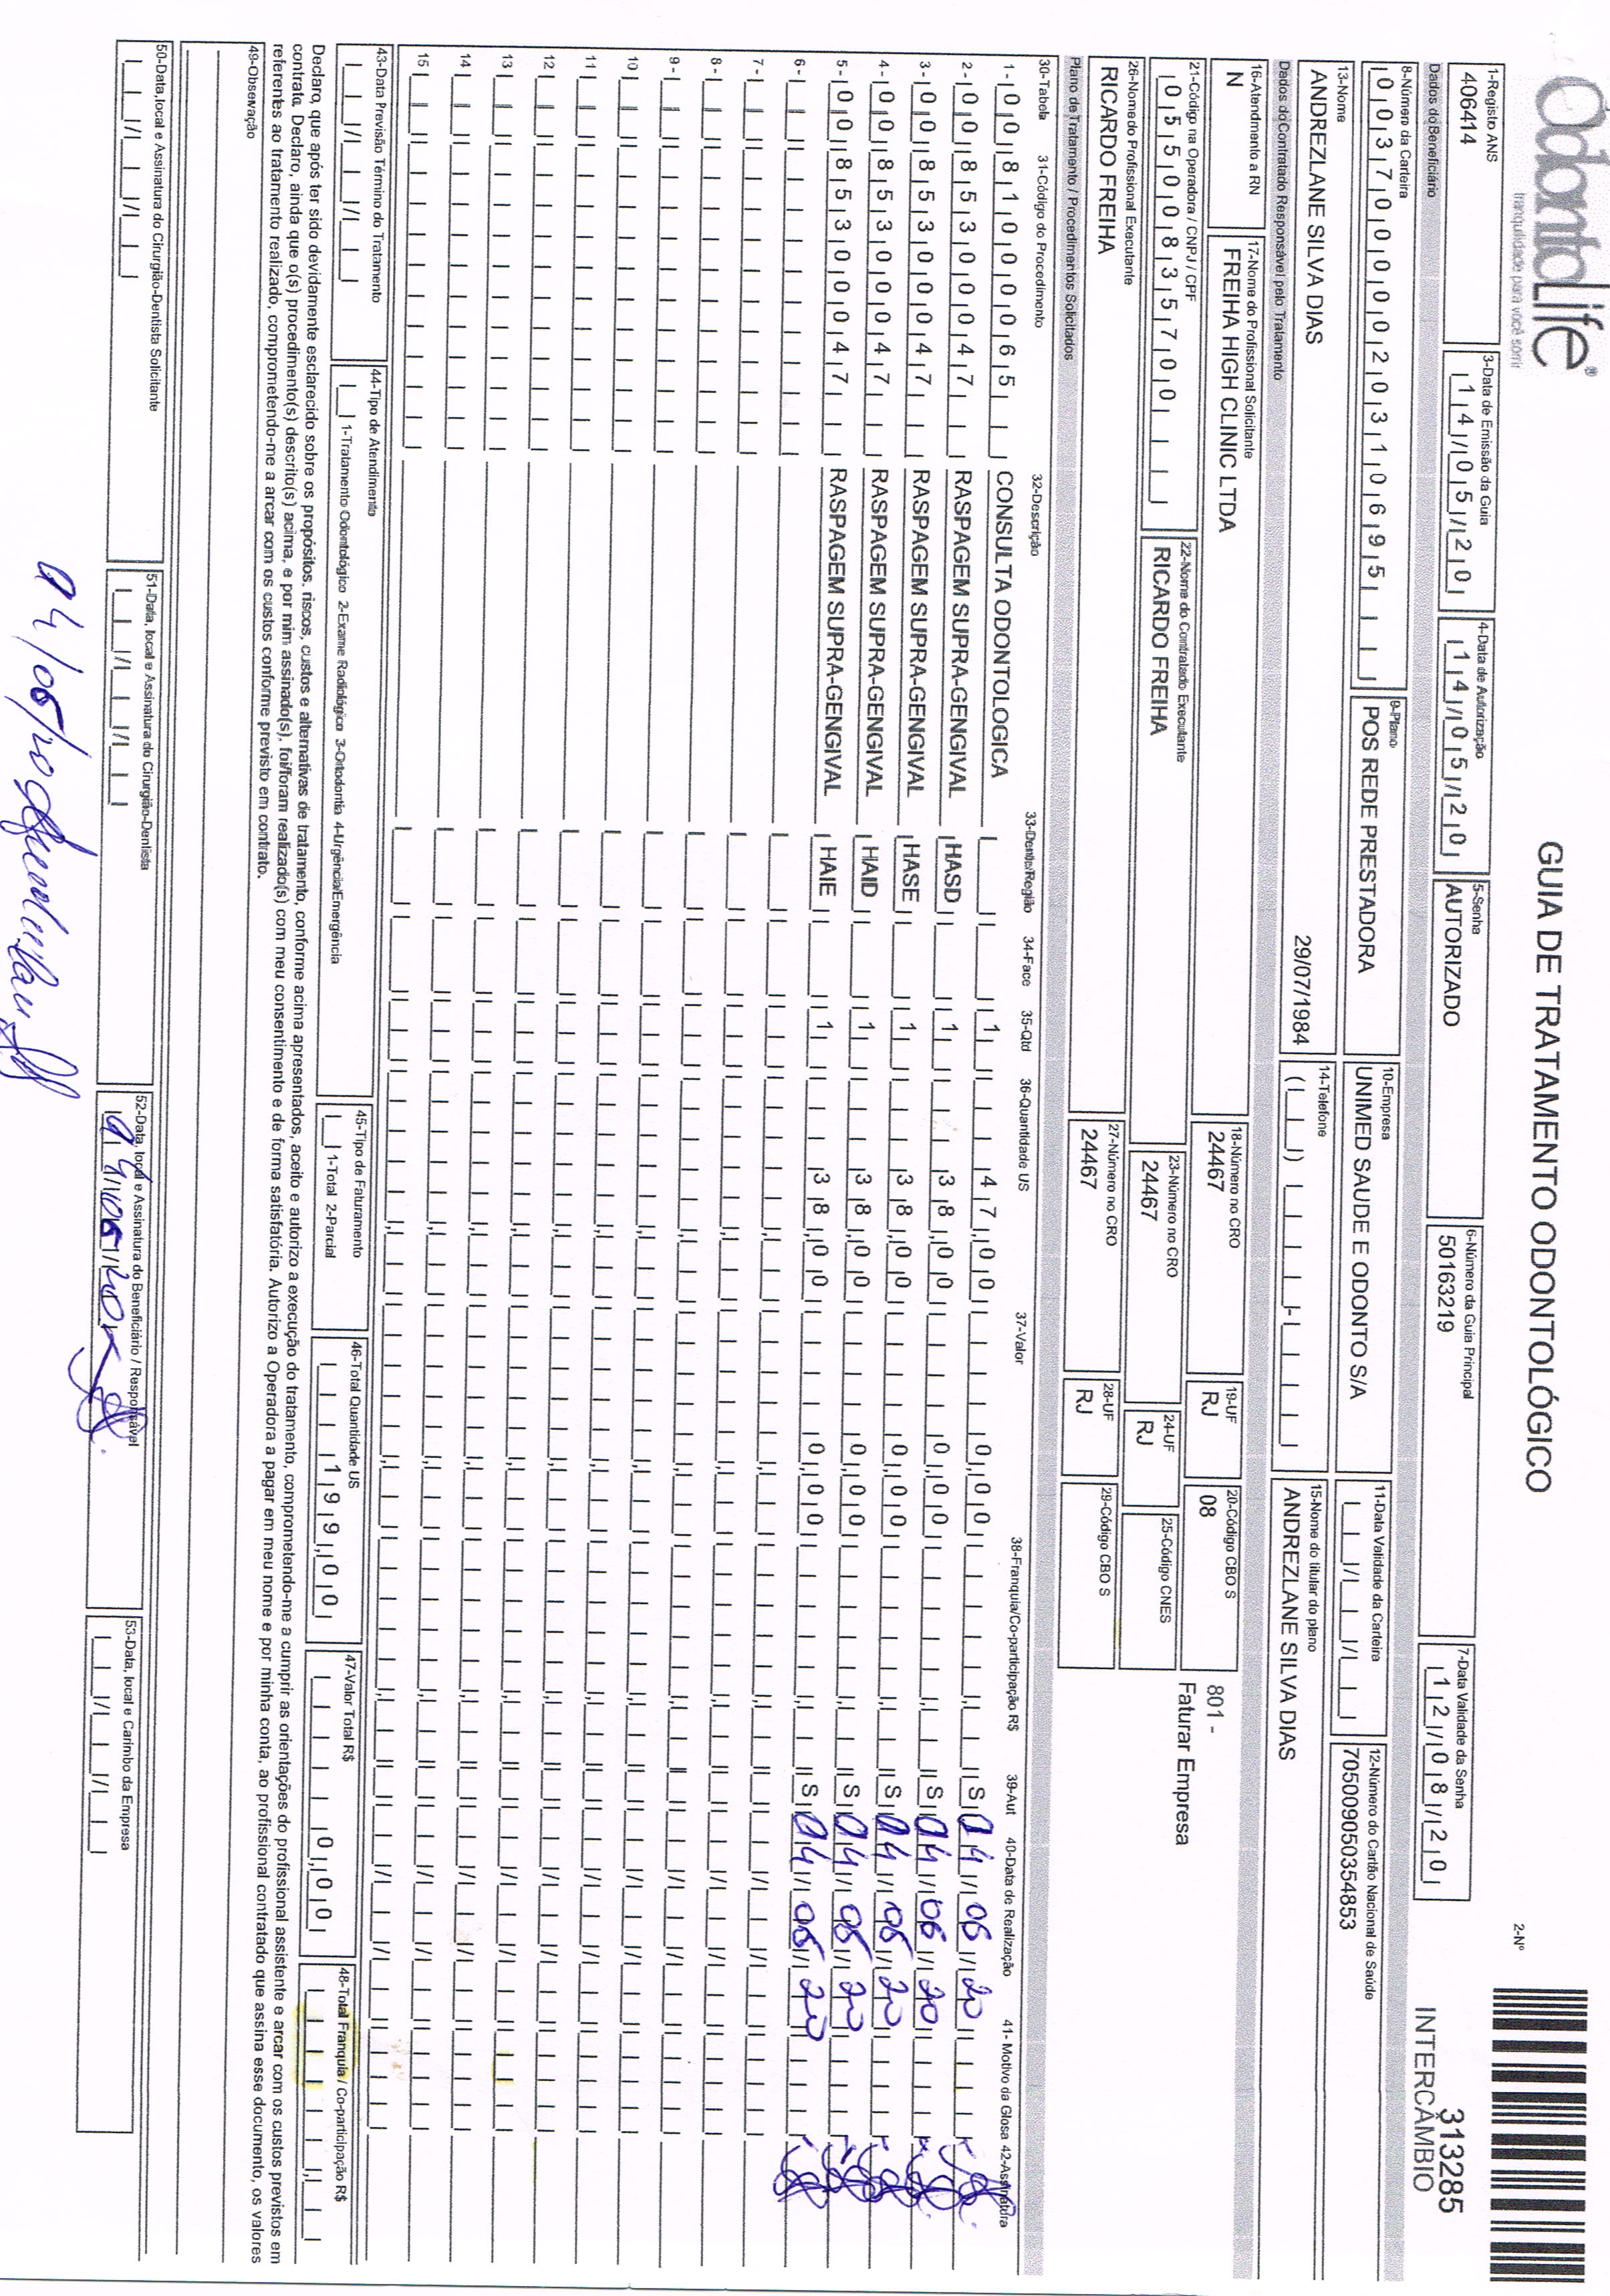 OdontoLife®
tranquilidade para você sorrir
GUIA DE TRATAMENTO ODONTOLÓGICO
2-Nº
313285
INTERCÂMBIO
1-Registo ANS
406414
3-Data de Emissão da Guia
14/05/20
4-Data de Autorização
14/05/20
5-Senha
AUTORIZADO
6-Número da Guia Principal
50163219
7-Data Validade da Senha
12/08/20
Dados do Beneficiário
8-Número da Carteira
00370000020310695
9-Plano
POS REDE PRESTADORA
10-Empresa
UNIMED SAUDE E ODONTO S/A
11-Data Validade da Carteira
12-Número do Cartão Nacional de Saúde
705009050354853
13-Nome
ANDREZLANE SILVA DIAS
29/07/1984
14-Telefone
15-Nome do titular do plano
ANDREZLANE SILVA DIAS
Dados do Contratado Responsável pelo Tratamento
16-Atendmento a RN
N
17-Nome do Profissional Solicitante
FREIHA HIGH CLINIC LTDA
18-Número no CRO
24467
19-UF
RJ
20-Código CBO S
08
801 -
Faturar Empresa
21-Código na Operadora / CNPJ / CPF
05500835700
22-Nome do Contratado Executante
RICARDO FREIHA
23-Número no CRO
24467
24-UF
RJ
25-Código CNES
26-Nome do Profissional Executante
RICARDO FREIHA
27-Número no CRO
24467
28-UF
RJ
29-Código CBO S
Plano de Tratamento / Procedimentos Solicitados
30-Tabela 31-Código do Procedimento 32-Descrição 33-Dente/Região 34-Face 35-Qtd 36-Quantidade US 37-Valor 38-Franquia/Co-participação R$ 39-Aut 40-Data de Realização 41- Motivo da Glosa 42-Assinatura
1- 00 81000065 CONSULTA ODONTOLOGICA 1 47,00 0,00 S 04/06/20
2- 00 85300047 RASPAGEM SUPRA-GENGIVAL HASD 1 38,00 0,00 S 04/06/20
3- 00 85300047 RASPAGEM SUPRA-GENGIVAL HASE 1 38,00 0,00 S 04/06/20
4- 00 85300047 RASPAGEM SUPRA-GENGIVAL HAID 1 38,00 0,00 S 04/06/20
5- 00 85300047 RASPAGEM SUPRA-GENGIVAL HAIE 1 38,00 0,00 S 04/06/20
6-
7-
8-
9-
10
11
12
13
14
15
43-Data Previsão Término do Tratamento
44-Tipo de Atendimento
1-Tratamento Odontológico 2-Exame Radiológico 3-Ortodontia 4-Urgência/Emergência
45-Tipo de Faturamento
1-Total 2-Parcial
46-Total Quantidade US
199,00
47-Valor Total R$
0,00
48-Total Franquia / Co-participação R$
Declaro, que após ter sido devidamente esclarecido sobre os propósitos, riscos, custos e alternativas de tratamento, conforme acima apresentados, aceito e autorizo a execução do tratamento, comprometendo-me a cumprir as orientações do profissional assistente e arcar com os custos previstos em
contrato. Declaro, ainda que o(s) procedimento(s) descrito(s) acima, e por mim assinado(s), foi/foram realizado(s) com meu consentimento e de forma satisfatória. Autorizo a Operadora a pagar em meu nome e por minha conta, ao profissional contratado que assina esse documento, os valores
referentes ao tratamento realizado, comprometendo-me a arcar com os custos conforme previsto em contrato.
49-Observação
50-Data,local e Assinatura do Cirurgião-Dentista Solicitante
51-Data, local e Assinatura do Cirurgião-Dentista
52-Data, local e Assinatura do Beneficiário / Responsável
04/06/20
53-Data, local e Carimbo da Empresa
04/06/20